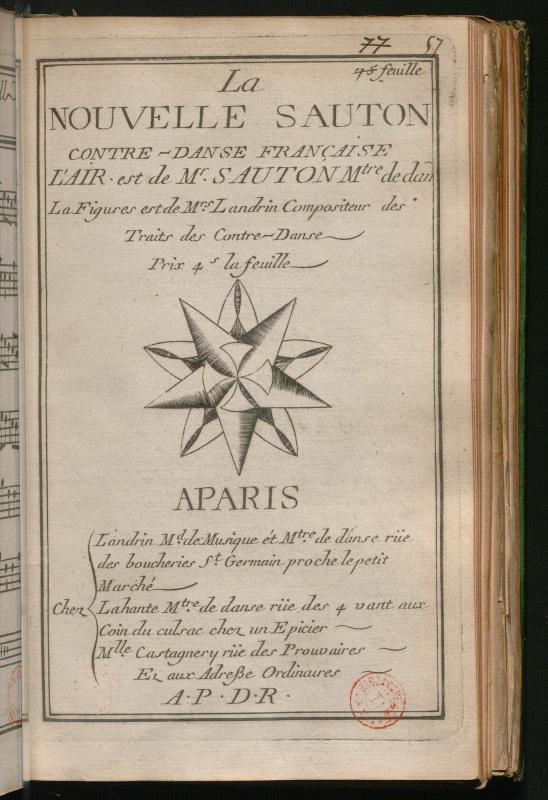 77 57
45 feuille
La
NOUVELLE SAUTON
CONTRE-DANSE FRANÇAISE
L'AIR est de Mr. SAUTON Mtre de dan
La Figures est de Mrs Landrin Compositeur des
Traits des Contre-Danse
Prix 4 s la feuille
APARIS
Chez
Landrin Md. de Musique ét Mtre de danse rüe
des boucheries St. Germain proche le petit
Marché
Lahante Mtre de danse rüe des 4 vant aux
Coin du culsac chez un Epicier
Mlle Castagnery rüe des Prouvaires
Et aux Adreße Ordinaires
A·P·D·R·